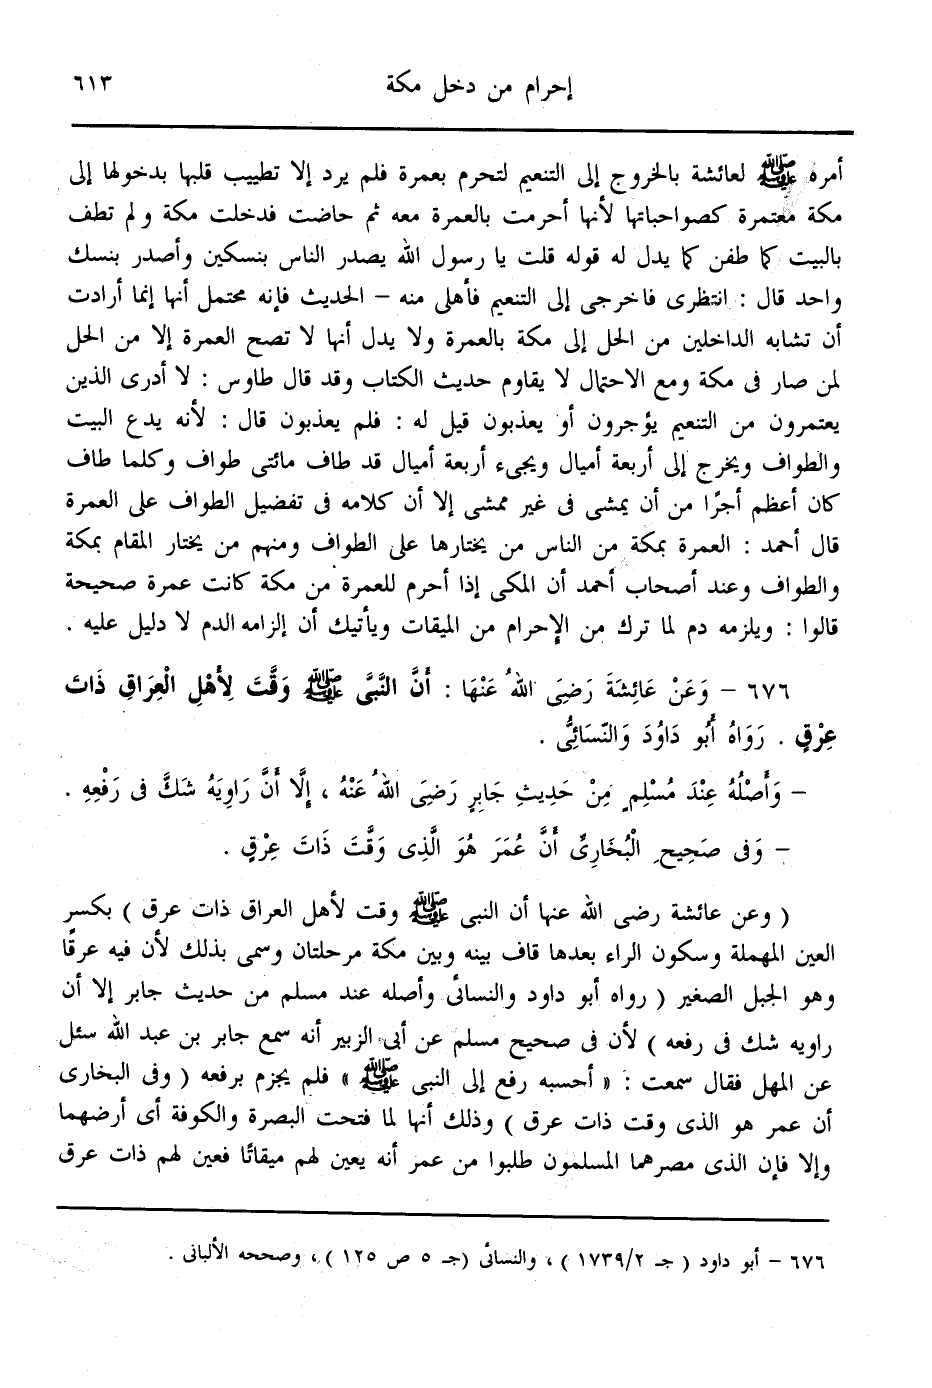 إحرام من دخل مكة ٦١٣
أمره ﷺ لعائشة بالخروج إلى التنعيم لتحرم بعمرة فلم يرد إلا تطييب قلبها بدخولها إلى
مكة معتمرة كصواحباتها لأنها أحرمت بالعمرة معه ثم حاضت فدخلت مكة ولم تطف
بالبيت كما طفن كما يدل له قوله قلت يا رسول الله يصدر الناس بنسكين وأصدر بنسك
واحد قال : انتظرى فاخرجى إلى التنعيم فأهلى منه – الحديث فإنه محتمل أنها إنما أرادت
أن تشابه الداخلين من الحل إلى مكة بالعمرة ولا يدل أنها لا تصح العمرة إلا من الحل
لمن صار فى مكة ومع الاحتمال لا يقاوم حديث الكتاب وقد قال طاوس : لا أدرى الذين
يعتمرون من التنعيم يؤجرون أو يعذبون قيل له : فلم يعذبون قال : لأنه يدع البيت
والطواف ويخرج إلى أربعة أميال ويجىء أربعة أميال قد طاف مائتى طواف وكلما طاف
كان أعظم أجرًا من أن يمشى فى غير ممشى إلا أن كلامه فى تفضيل الطواف على العمرة
قال أحمد : العمرة بمكة من الناس من يختارها على الطواف ومنهم من يختار المقام بمكة
والطواف وعند أصحاب أحمد أن المكى إذا أحرم للعمرة من مكة كانت عمرة صحيحة
قالوا : ويلزمه دم لما ترك من الإحرام من الميقات ويأتيك أن إلزامه الدم لا دليل عليه .
٦٧٦ – وَعَنْ عَائِشَةَ رَضِىَ اللهُ عَنْهَا : أَنَّ النَّبِىَّ ﷺ وَقَّتَ لِأَهْلِ الْعِرَاقِ ذَاتَ
عِرْقٍ . رَوَاهُ أَبُو دَاوُدَ وَالنَّسَائِىُّ .
– وَأَصْلُهُ عِنْدَ مُسْلِمٍ مِنْ حَدِيثِ جَابِرٍ رَضِىَ اللهُ عَنْهُ ، إِلَّا أَنَّ رَاوِيَهُ شَكَّ فى رَفْعِهِ .
– وَفى صَحِيحِ الْبُخَارِىِّ أَنَّ عُمَرَ هُوَ الَّذِى وَقَّتَ ذَاتَ عِرْقٍ .
( وعن عائشة رضى الله عنها أن النبى ﷺ وقت لأهل العراق ذات عرق ) بكسر
العين المهملة وسكون الراء بعدها قاف بينه وبين مكة مرحلتان وسمى بذلك لأن فيه عرقًا
وهو الجبل الصغير ( رواه أبو داود والنسائى وأصله عند مسلم من حديث جابر إلا أن
راويه شك فى رفعه ) لأن فى صحيح مسلم عن أبى الزبير أنه سمع جابر بن عبد الله سئل
عن المهل فقال سمعت : « أحسبه رفع إلى النبى ﷺ » فلم يجزم برفعه ( وفى البخارى
أن عمر هو الذى وقت ذات عرق ) وذلك أنها لما فتحت البصرة والكوفة أى أرضهما
وإلا فإن الذى مصرهما المسلمون طلبوا من عمر أنه يعين لهم ميقاتًا فعين لهم ذات عرق
٦٧٦ – أبو داود ( جـ ١٧٣٩/٢ ) ، والنسائى (جـ ٥ ص ١٢٥ ) ، وصححه الألبانى .